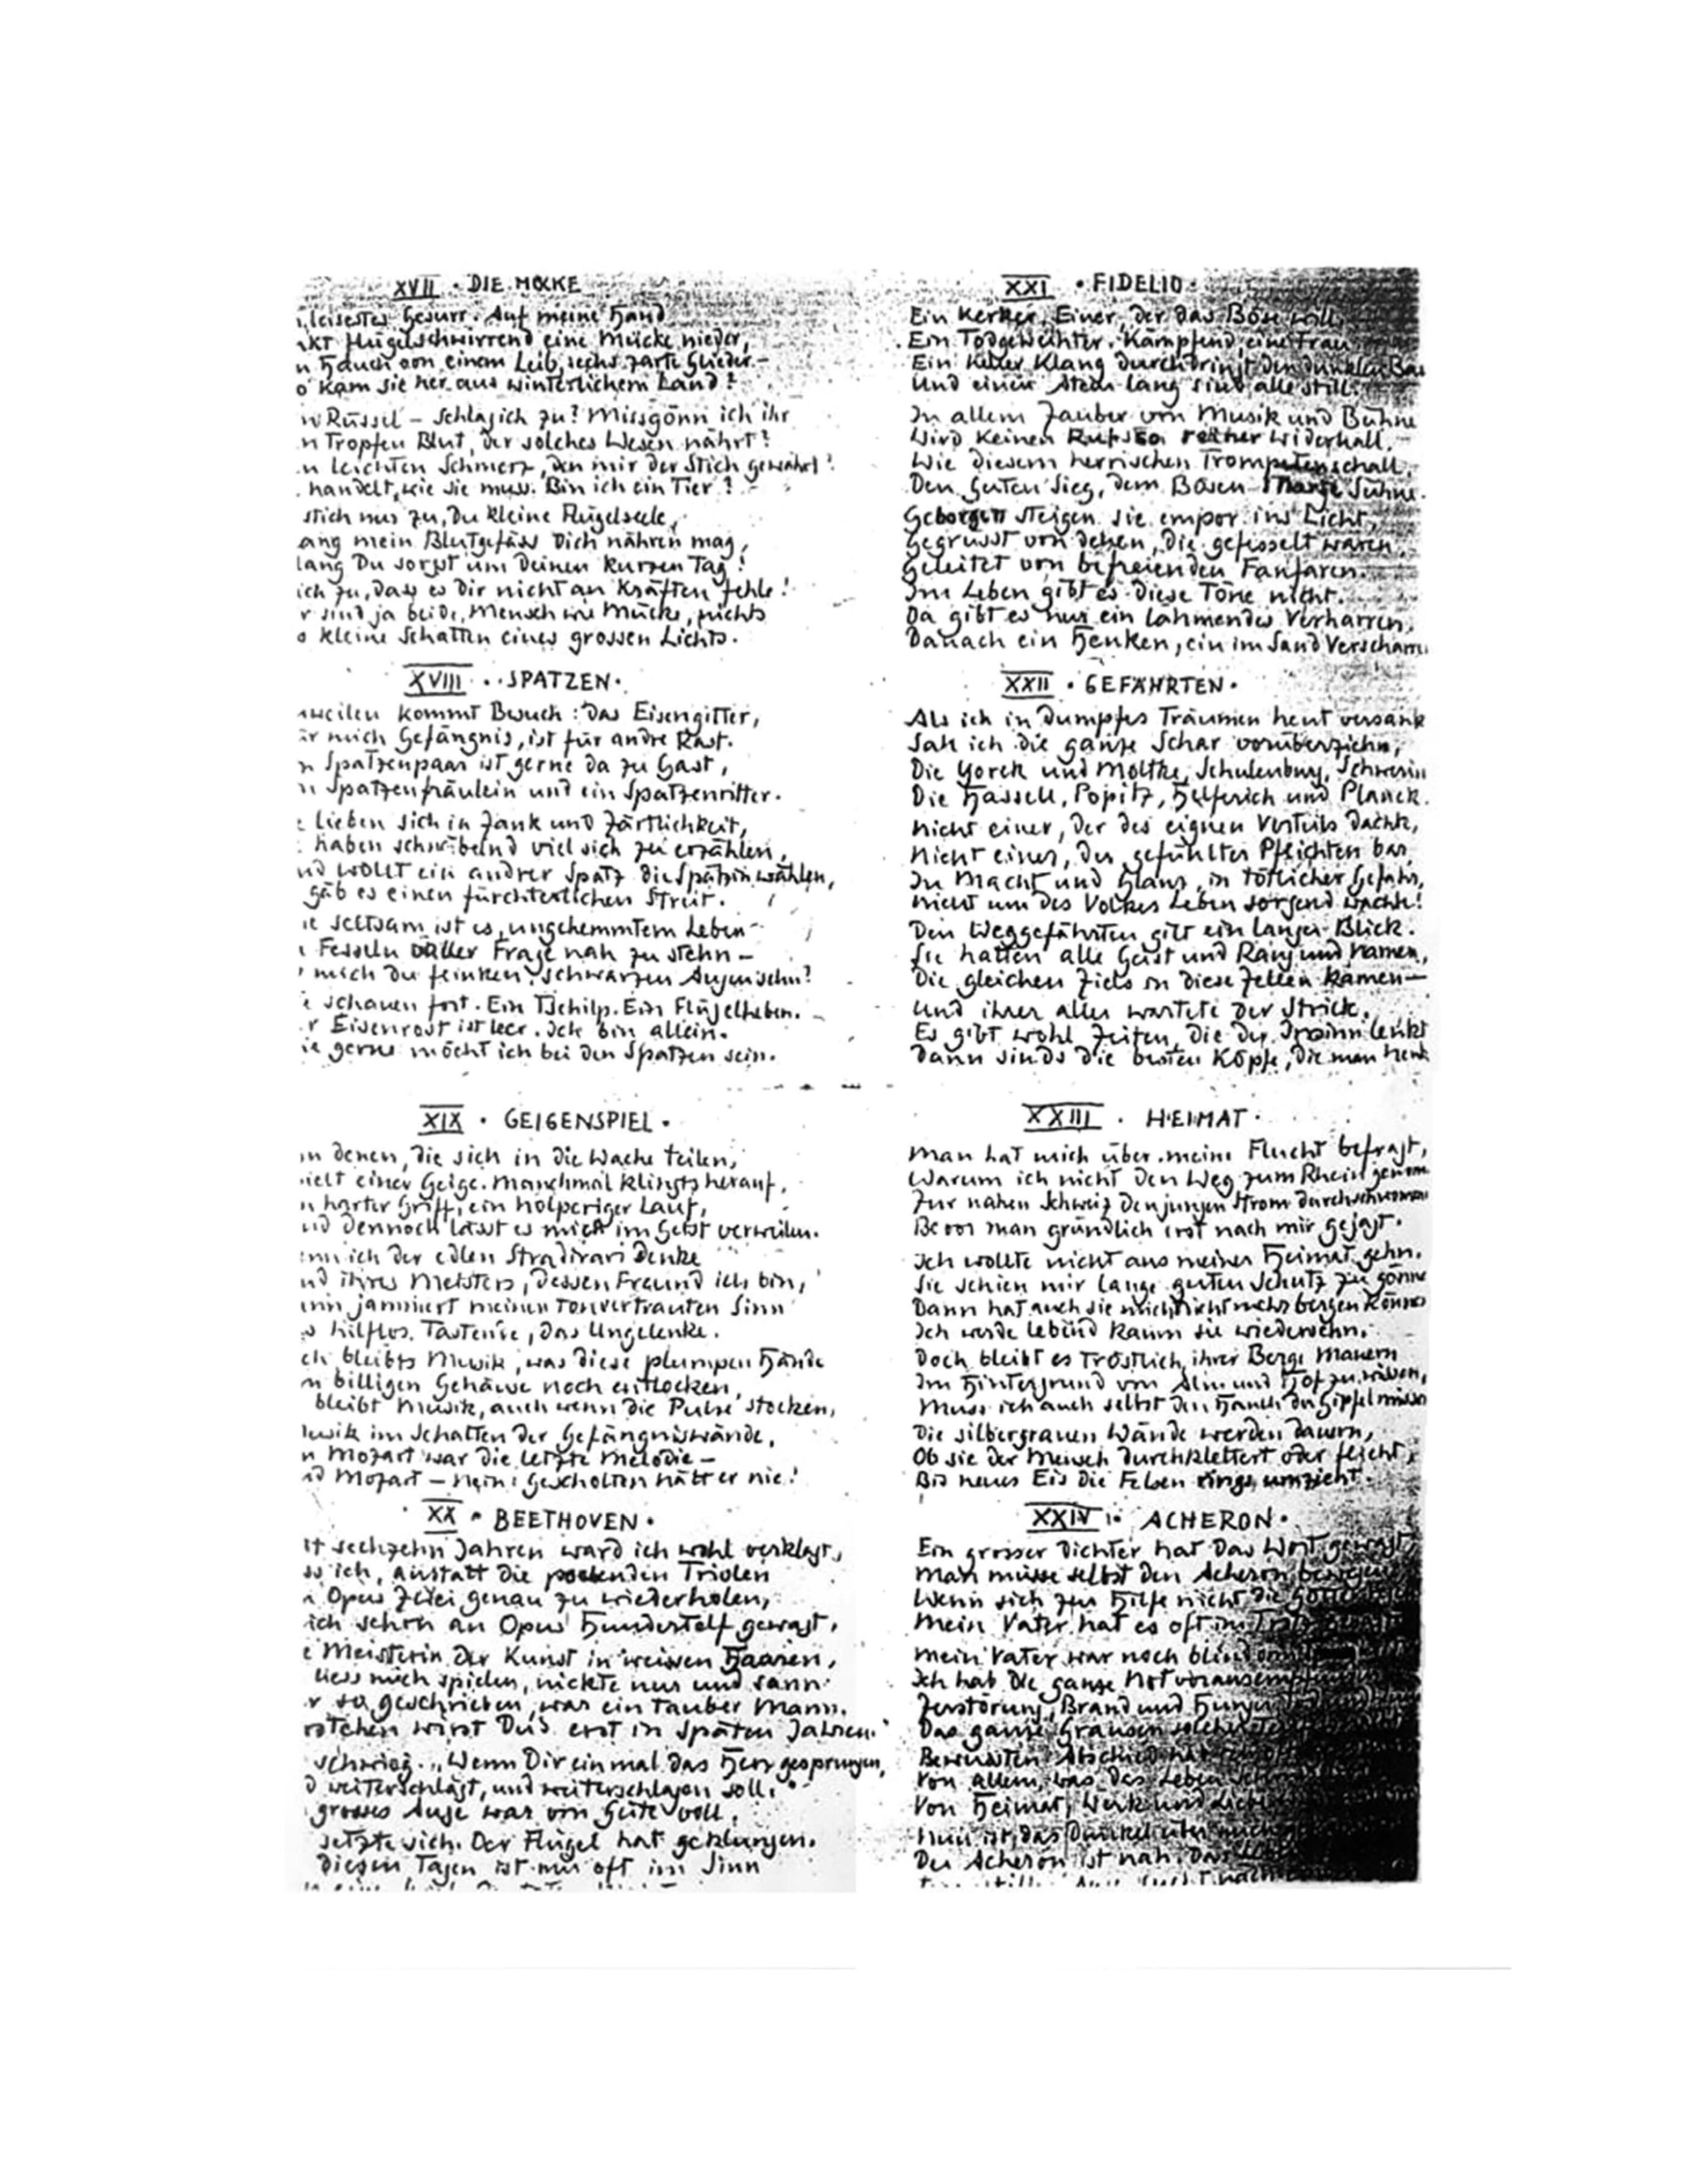 XVII · DIE MÜCKE
leisestes Gesurr. Auf meine Hand
kt flügelschwirrend eine Mücke nieder,
n Hauch von einem Leib, sechs zarte Glieder –
o kam sie her aus winterlichem Land?
n Rüssel – Schlag ich zu? Missgönn ich ihr
n Tropfen Blut, der solches Wesen nährt?
n leichten Schmerz, den mir der Stich gewährt?
handelt, wie sie muss. Bin ich ein Tier?
stich nur zu, Du kleine Flügelseele,
ang mein Blutgefäss Dich nähren mag,
lang Du sorgst um Deinen kurzen Tag!
ich zu, dass es Dir nicht an Kräften fehle!
r sind ja beide, Mensch wie Mücke, nichts
s kleine Schatten eines grossen Lichts.
XVIII · SPATZEN ·
weilen kommt Besuch: das Eisengitter,
r mich Gefängnis, ist für andre Rast.
n Spatzenpaar ist gerne da zu Gast,
n Spatzenfräulein und ein Spatzenritter.
e lieben sich in Zank und Zärtlichkeit,
haben schnäbelnd viel sich zu erzählen,
nd wollt ein andrer Spatz die Spätzin wählen,
gäb es einen fürchterlichen Streit.
ie seltsam ist es, ungehemmtem Leben
Fesseln aller Frage nah zu stehn –
mich die flinken, schwarzen Augen sehn?
e schauen fort. Ein Tschilp. Ein Flügelheben.
r Eisenrost ist leer. Ich bin allein.
ie gerne möcht ich bei den Spatzen sein.
XIX · GEIGENSPIEL ·
n denen, die sich in die Wache teilen,
ielt einer Geige. Manchmal klingts herauf,
n harter Griff, ein holperiger Lauf,
nd dennoch lässt es mich im Geist verweilen.
nn ich der edlen Stradivari denke
nd ihres Meisters, dessen Freund ich bin,
nn jammert meinen tonvertrauten Sinn
s hilflos Tastende, das Ungelenke.
ch bleibts Musik, was diese plumpen Hände
m billigen Gehäuse noch entlocken,
bleibt Musik, auch wenn die Pulse stocken,
usik im Schatten der Gefängniswände.
n Mozart war die letzte Melodie –
nd Mozart – nein: Gescholten hätt er nie!
XX · BEETHOVEN ·
it sechzehn Jahren ward ich wohl verklagt,
ss ich, anstatt die pochenden Triolen
n Opus Zwei genau zu wiederholen,
ich schon an Opus Hundertelf gewagt.
e Meisterin der Kunst in weissen Haaren,
liess mich spielen, nickte nur und sann:
r so geschrieben, war ein tauber Mann.
rstehen wirst Dus erst in späten Jahren."
schwieg. „Wenn Dir einmal das Herz gesprungen,
d weiterschlägt, und weiterschlagen soll."
grosses Auge war von Güte voll.
setzte sich. Der Flügel hat geklungen.
diesen Tagen ist mir oft im Sinn
XXI · FIDELIO ·
Ein Kerker. Einer, der das Böse will.
Ein Todgeweihter. Kämpfend eine Frau
Ein heller Klang durchdringt den dunklen Bau
Und einen Atem lang sind alle still.
In allem Zauber von Musik und Bühne
Wird keinem Ruf so reiner Widerhall,
Wie diesem herrischen Trompetenschall,
Den Guten Sieg, dem Bösen harte Sühne.
Geborgen steigen sie empor ins Licht,
Gegrüsst von denen, die gefesselt waren,
Geleitet von befreienden Fanfaren.
Im Leben gibt es diese Töne nicht.
Da gibt es nur ein lähmendes Verharren,
Danach ein Henken, ein im Sand Verscharren
XXII · GEFÄHRTEN ·
Als ich in dumpfes Träumen heut versank
Sah ich die ganze Schar vorüberziehn,
Die Yorck und Moltke, Schulenburg, Schwerin
Die Hassell, Popitz, Helferich und Planck.
Nicht einer, der des eignen Vorteils dachte,
Nicht einer, der gefühlter Pflichten bar,
In Macht und Glanz, in tötlicher Gefahr,
Nicht um des Volkes Leben sorgend wachte!
Den Weggefährten gilt ein langer Blick.
Sie hatten alle Geist und Rang und Namen,
Die gleichen Ziels in diese Zellen kamen –
Und ihrer aller wartete der Strick.
Es gibt wohl Zeiten, die der Irrsinn lenkt
Dann sinds die besten Köpfe, die man henk
XXIII · HEIMAT ·
Man hat mich über meine Flucht befragt,
Warum ich nicht den Weg zum Rhein genom
Zur nahen Schweiz den jungen Strom durchschwomm
Bevor man gründlich erst nach mir gejagt.
Ich wollte nicht aus meiner Heimat gehn.
Sie schien mir lange guten Schutz zu gönne
Dann hat auch sie mich nicht mehr bergen können
Ich werde lebend kaum sie wiedersehn.
Doch bleibt es tröstlich, ihrer Berge Mauern
Im Hintergrund von Alm und Hof zu wissen,
Muss ich auch selbst den Hauch der Gipfel missen
Die silbergrauen Wände werden dauern,
Ob sie der Mensch durchklettert oder flieht,
Bis neues Eis die Felsen rings umzieht.
XXIV · ACHERON ·
Ein grosser Dichter hat das Wort gewagt,
Man müsse selbst den Acheron bewegen
Wenn sich zur Hilfe nicht die Götter
Mein Vater hat es oft im
Mein Vater war noch blind
Ich hab die ganze Not vorausempf
Zerstörung, Brand und Hunger
Das ganze Grausen solcher
Bewussten Abschied hab
Von allem, was das Leben
Von Heimat, Werk und Liebe
Nun ist das Dunkel über mich
Der Acheron ist nah. Das